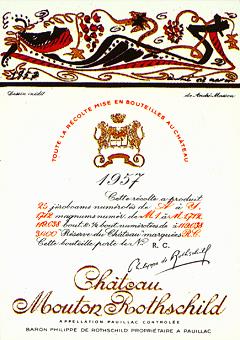 1957
Dessin inédit
de André Masson
TOUTE LA RÉCOLTE MISE EN BOUTEILLES AU CHÂTEAU
1957
Cette récolte a produit
25 jéroboams numérotés de A à
magnums numér. de M1 à M
bout. & ½ bout. numérotées de 1 à
3000 "Réserve du Château" marquées R.C.
Cette bouteille porte le N° R.C.
Philippe de Rothschild
Château
Mouton Rothschild
APPELLATION PAUILLAC CONTRÔLÉE
BARON PHILIPPE DE ROTHSCHILD PROPRIÉTAIRE A PAUILLAC